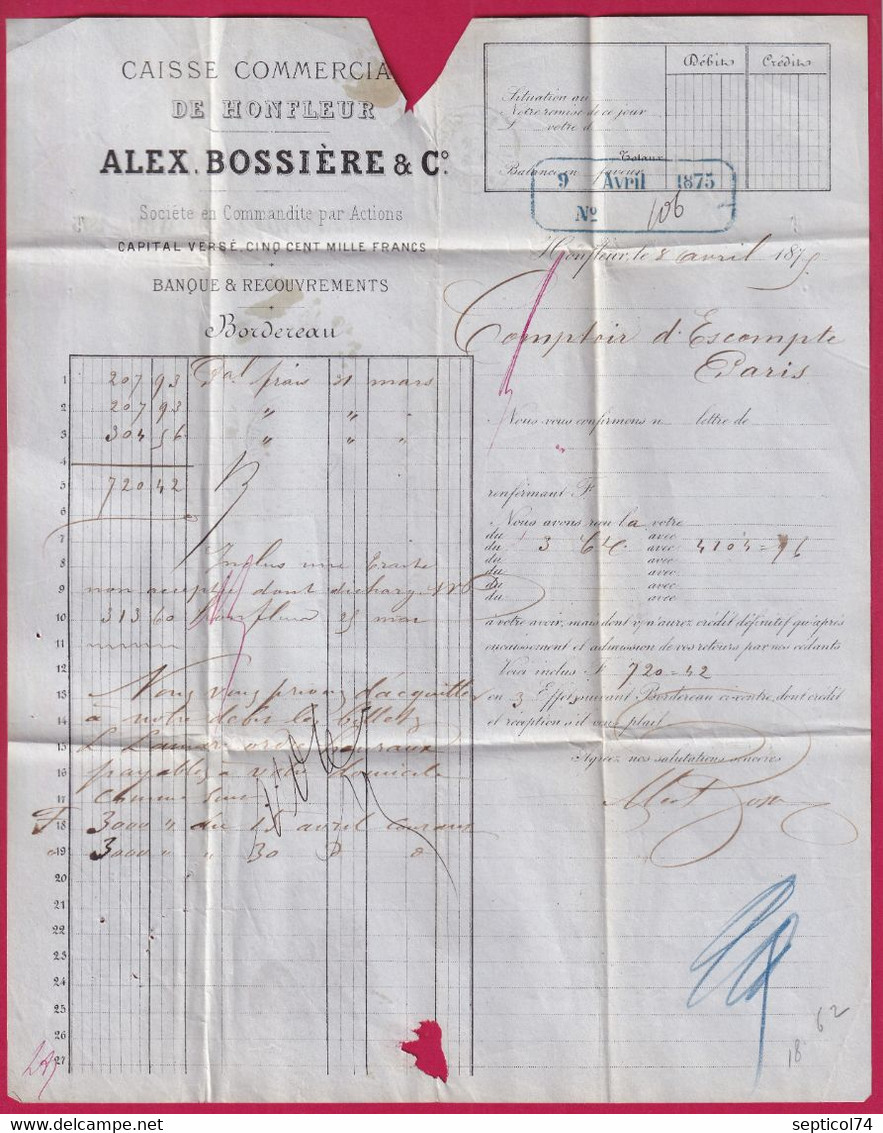 CAISSE COMMERCIA
DE HONFLEUR
ALEX. BOSSIÈRE & Cº.
Société en Commandite par Actions
CAPITAL VERSÉ, CINQ CENT MILLE FRANCS
BANQUE & RECOUVREMENTS
Bordereau
Débits Crédits
Situation au
Notre remise de ce jour
votre d
Totaux
Balance en faveur
9 Avril 1875
Nº 106
Honfleur, le 8 avril 1875
Comptoir d'Escompte
Paris
1 207 93 frais 31 mars
2 207 93 " "
3 304 56 " " "
4
5 720 42
6
7
8 Inclus une traite
9 non acceptée dont
10 313 60 Honfleur 25 mar
11
12
13 Nous vous prions d'acquitter
14 à notre débit les billets
15
16 payables à votre domicile
17 comme suit
18 3000 " du 15 avril courant
19 3000 " " 30
20
21
22
23
24
25
26
27
Nous vous confirmons n lettre de
renfermant F
Nous avons reçu la votre
du avec
du 3 avec 4104=96
du avec
du avec
du avec
à votre avoir, mais dont v/ n'aurez crédit définitif qu'après
encaissement et admission de vos retours par nos cédants
Voici inclus F 720=42
en 3 Effets suivant Bordereau ci-contre, dont crédit
et réception s'il vous plaît
Agréez nos salutations sincères
62
18
septicol74